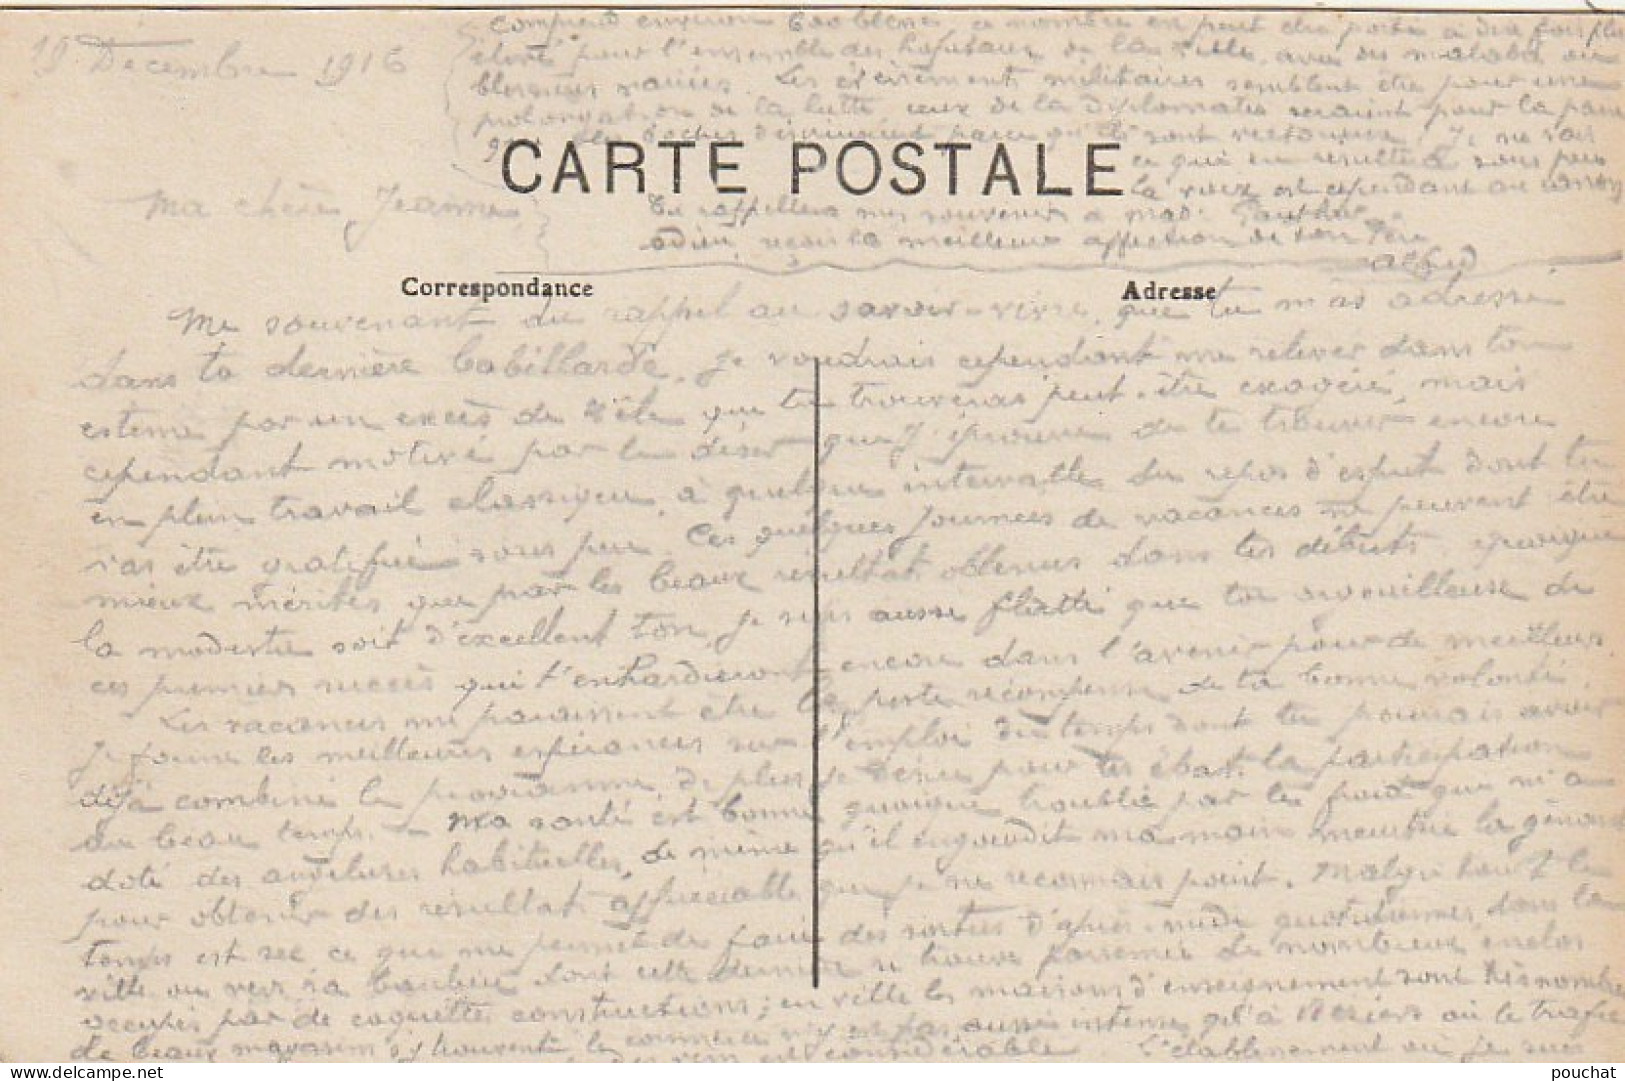 19 Décembre 1916
comprend environ 600 blessés, ce nombre en peut être porté à dix fois plus
élevé pour l'ensemble des hôpitaux de la ville, avec des malades ou
blessures variées. Les évènements militaires semblent être pour une
prolongation de la lutte, ceux de la diplomatie seraient pour la paix
que les boches désireraient parce qu'ils sont victorieux! Je ne sais
CARTE POSTALE
ce qui en résultera sous peu
la voix est cependant au canon
Ma chère Jeanne,
Tu rappelleras mes souvenirs à Mad. Gauthier
adieu, reçois la meilleure affection de ton Père
Alfred
Correspondance
Adresse
Me souvenant du rappel au savoir-vivre, que tu m'as adressé
dans ta dernière babillarde, je voudrais cependant me relever dans ton
estime par un excès de zèle que tu trouveras peut-être exagéré, mais
cependant motivé par le désir que j'éprouve de te trouver encore
en plein travail classique, à quelque intervalle du repos d'esprit dont tu
vas être gratifiée sous peu. Ces quelques journées de vacances ne peuvent être
mieux méritées que par les beaux résultats obtenus dans tes débuts, quoique
la modestie soit d'excellent ton, je suis aussi flatté que toi orgueilleuse de
ces premiers succès qui t'enhardiront encore dans l'avenir pour de meilleurs.
Les vacances me paraissent être la juste récompense de ta bonne volonté.
Je forme les meilleures espérances sur l'emploi du temps dont tu pourrais avoir
déjà combiné le programme, de plus je désire pour tes ébats la participation
du beau temps. - Ma santé est bonne quoique troublée par le froid que m'a
doté des engelures habituelles, de même qu'il engourdit ma main meurtrie la gênant
pour obtenir des résultats appréciables que je ne reconnais point. Malgré tout le
temps est sec ce que me permet de faire des sorties d'après-midi quotidiennes dans la
ville ou vers sa banlieue dont cette dernière se trouve parsemée de nombreux enclos
occupés par de coquettes constructions; en ville les maisons d'enseignement sont très nombreuses
de beaux magasins s'y trouvent le commerce n'y est pas aussi intense qu'à Béziers où le trafic
des vins est considérable L'établissement où je suis
pouchat